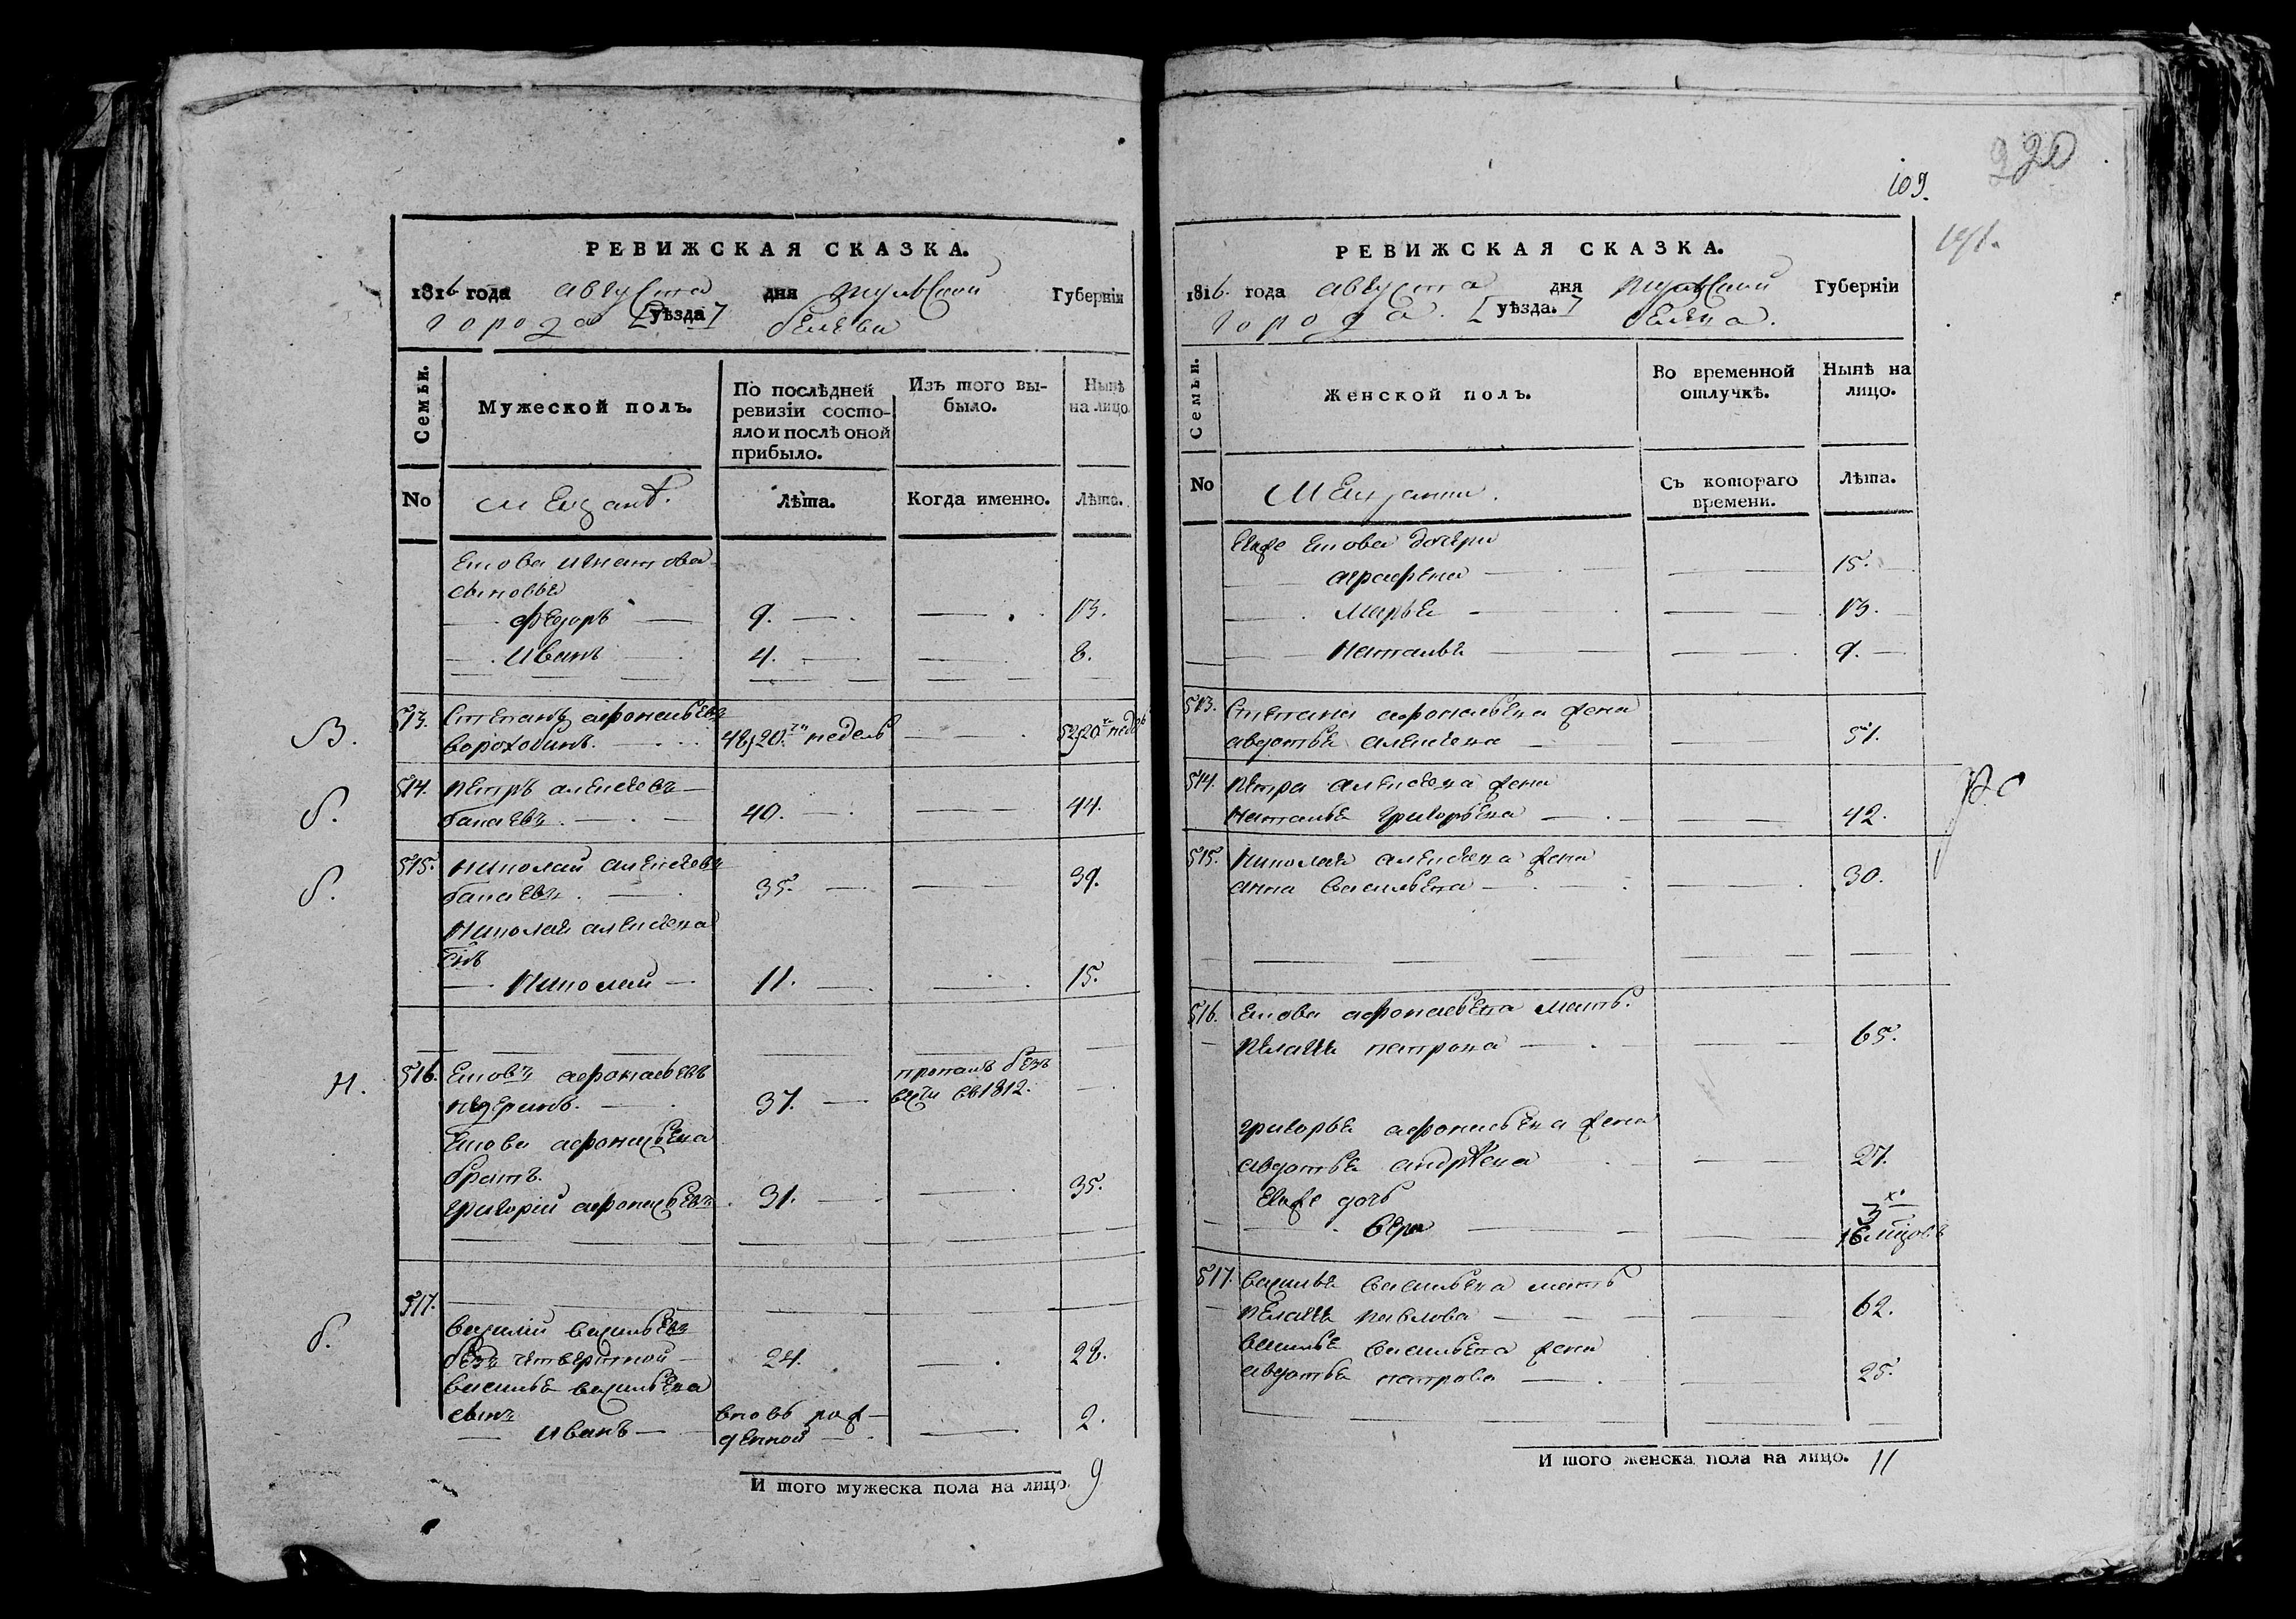 РЕВИЖСКАЯ СКАЗКА.
1816 года августа дня тульской Губернїи
города [уѣзда] белева
Семьи.
Мужеской полъ.
По послѣдней
ревизїи состо-
яло и послѣ оной
прибыло.
Изъ того вы-
было.
Нынѣ
на лицо
No
мещанъ.
Лѣта.
Когда именно.
Лѣта.
емова игнатова
сыновья
— федоръ — 9. — — 13.
— Иванъ 4. — — 8.
В.
513. Степанъ афонасьевъ
48 20ти недель — 52 20ти недель
б.
514. петръ алексеевъ —
40. — — 44.
б.
515. николай алексеевъ
35. — — 39.
николая алексеева
сынъ
— Николай — 11. — — 15.
Н.
516. афонасьевъ
пропалъ безъ
37. — вести въ 1812. —
афонасьева
братъ.
григорий афонасьевъ. 31. — — 35.
б.
517.
василий васильевъ
24. — 28.
василья васильева
сынъ
— иванъ — вновь рож-
денной — 2.
И того мужеска пола на лицо. 9
220
109.
191.
РЕВИЖСКАЯ СКАЗКА.
1816. года августа дня тульской Губернїи
города. [уѣзда.] белева.
Семьи.
Женской полъ.
Во временной
отлучкѣ.
Нынѣ на
лицо.
No
Мещанки.
Съ котораго
времени.
Лѣта.
дочери
аграфена — — 15.
Марья — — 13. —
Наталья — — 9. —
513. Степана афонасьева жена
авдотья алексеева — — 51.
514. петра алексеева жена
наталья григорьева — — 42.
515. николая алексеева жена
анна васильева — — 30.
516. афонасьева мать.
пелагея петрова — — 65.
григорья афонасьева жена
авдотья андреева — 27.
дочь 3х
вера — — 16 мцовъ
517. василья васильева мать
пелагея павлова — — 62.
василья васильева жена
авдотья петрова — — 25.
И того женска пола на лицо. 11